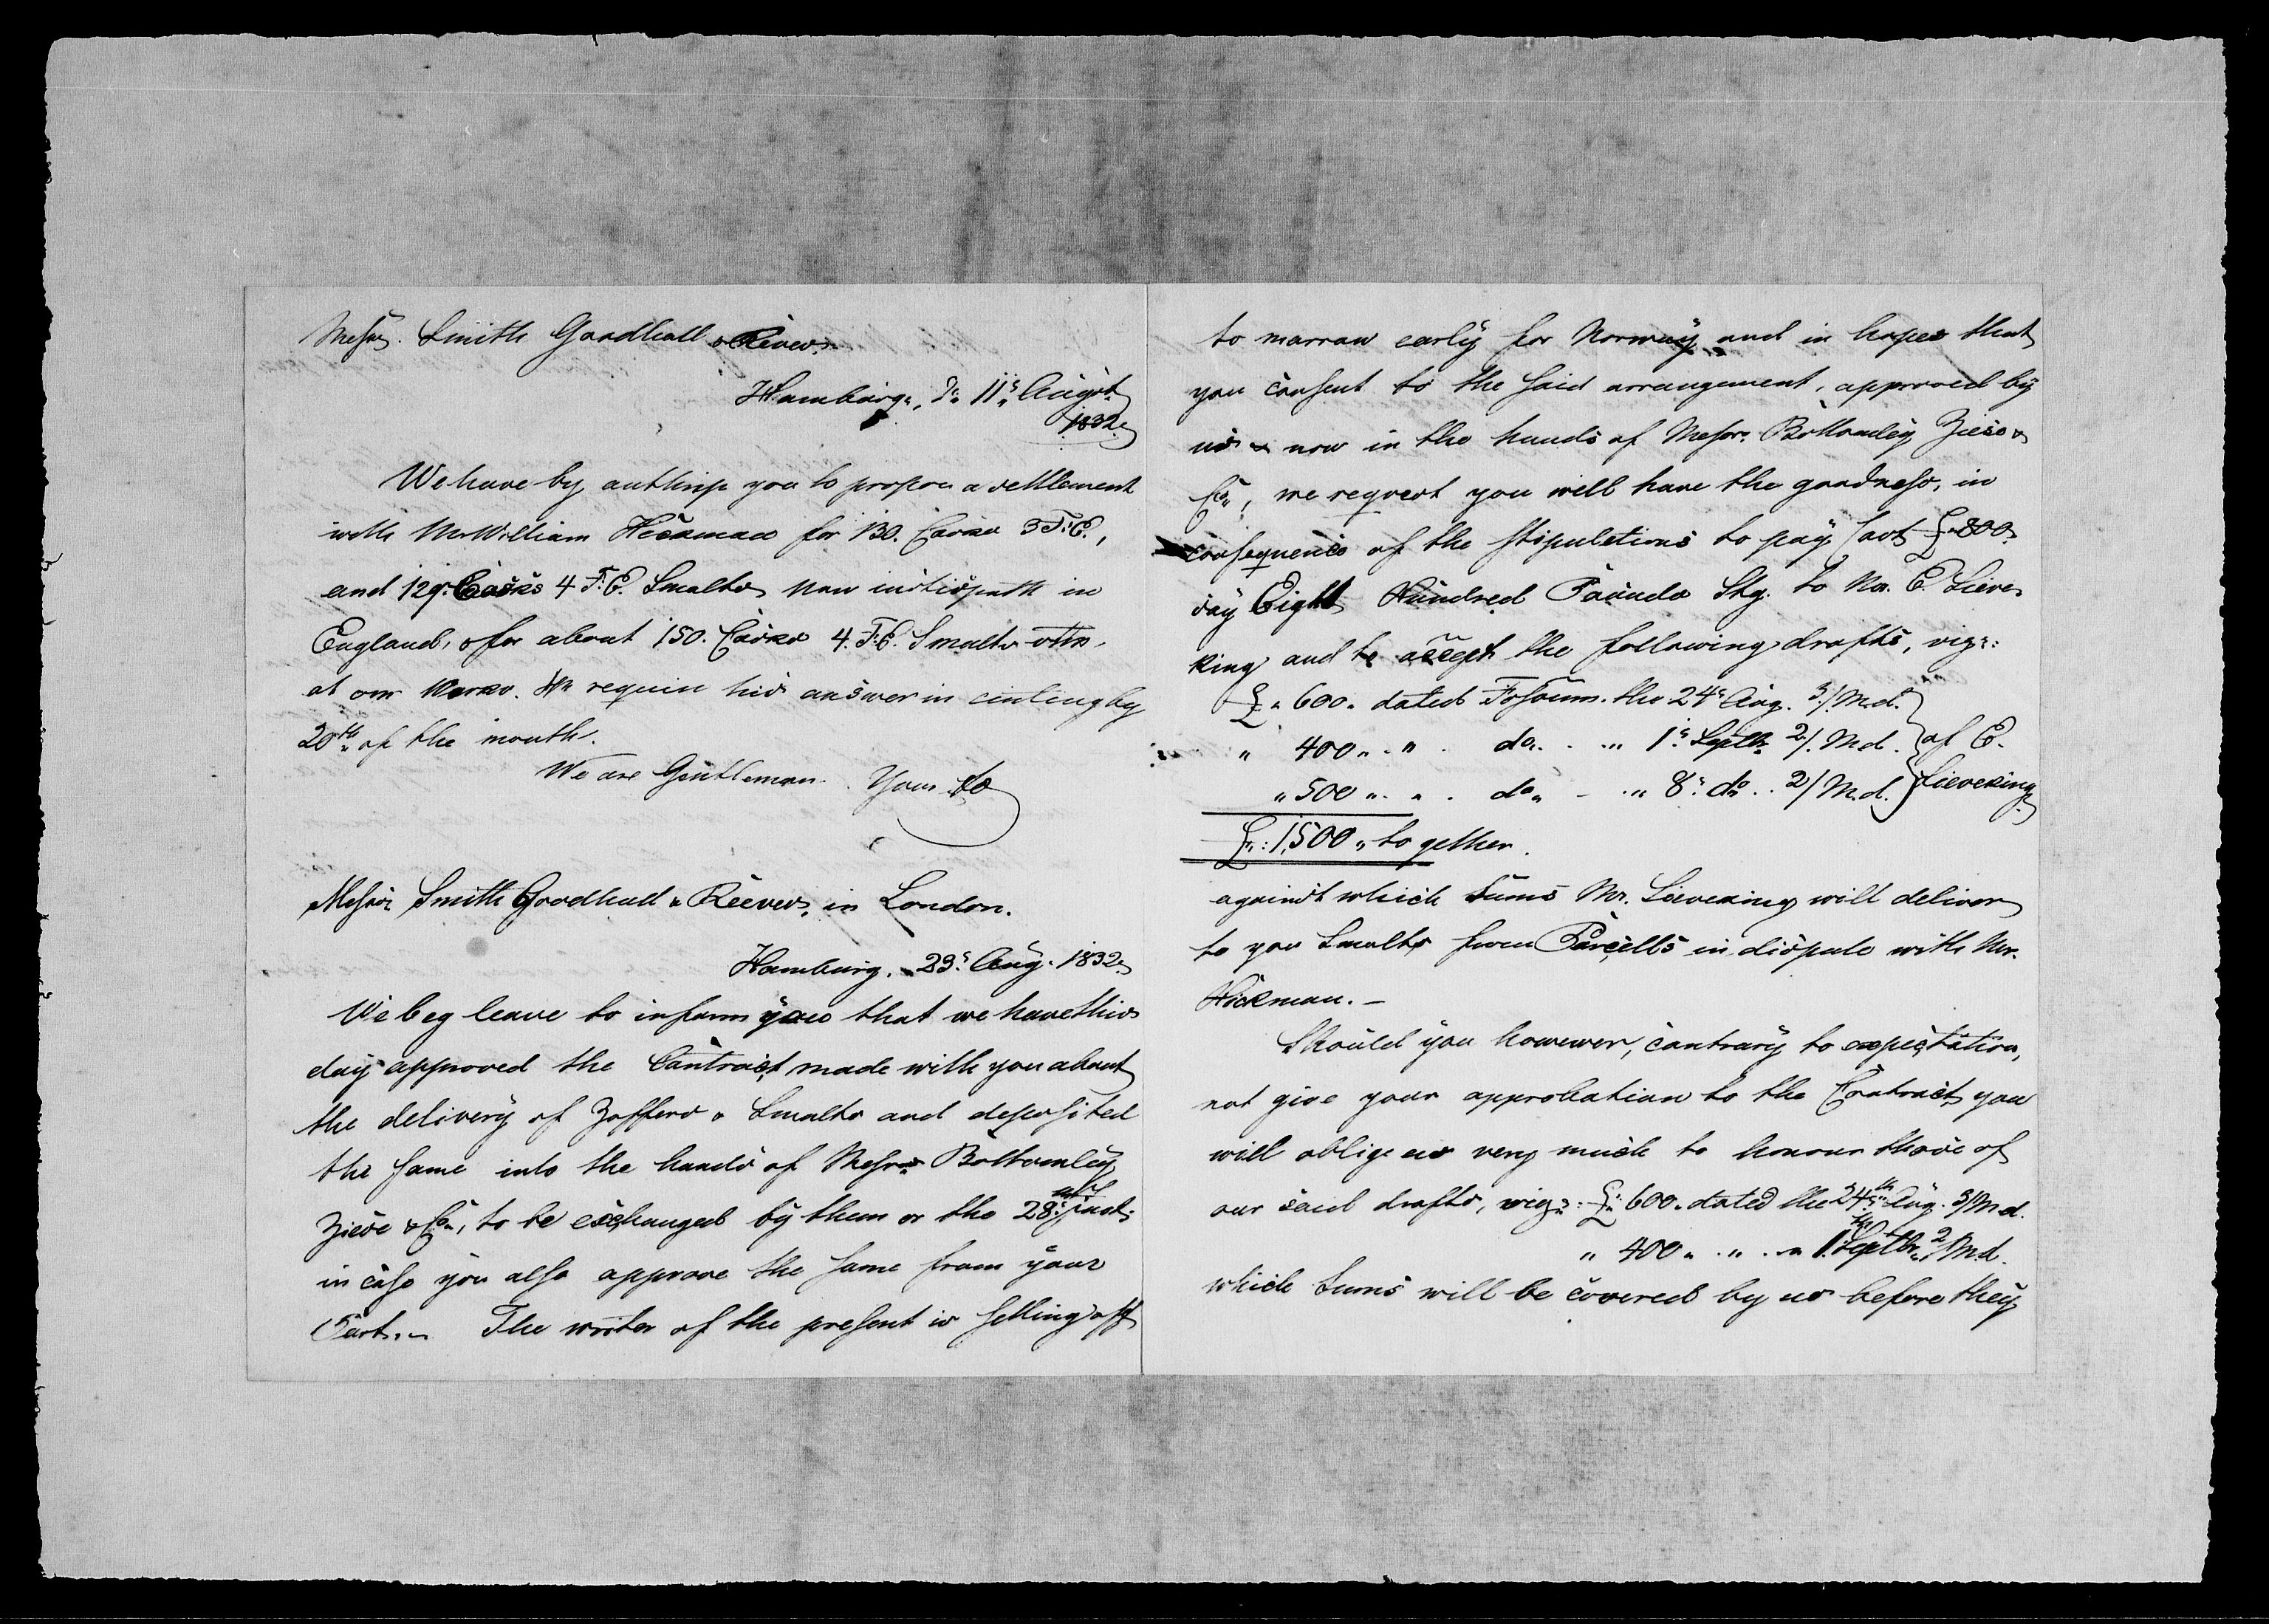 Messrs. Smith Goodhall & Reeves.
Hamburg, d. 11. August
1832.
We have by authrise you to propose a settlement
with Mr William Heckman for 130. Casks 3 F.E.,
and 129. Casks 4 F.E. Smalts now in dispute in
England, & for about 150. Casks 4. F.E. Smalts
at our Works. We require his answer in
20th of the month.
We are Gentlemen. Yours &c
Messrs Smith Goodhall & Reeves, in London.
Hamburg. 23. Aug. 1832.
We beg leave to inform you that we have this
day approved the Contract made with you about
the delivery of Zaffers & Smalts and deposited
the same into the hands of Messrs Bottomley
Ziese & Co, to be exchanged by them on the 28. inst.
in case you also approve the same from your
Part. – The writer of the present is setting off
to morrow early for Norway and in hopes that
you consent to the said arrangement, approved by
us & now in the hands of Messr. Bottomley Ziese &
Co, we request you will have the goodness, in
consequence of the stipulations to pay £ 800
say Eight Hundred Pounds Stg. to Mr. E. Sieve
king and to accept the following drafts, viz:
£ 600. dated Fossum. the 24. Aug. 3/M.d.
" 400 " " do. " 1. Septbr 2/M.d. } of E.
" 500 " " do. " 8. do. 2/M.d. } Sieveking
£: 1,500 " to gether.
against which Sums Mr. Sieveking will deliver
to you Smalts from Parcells in dispute with Mr.
Hickman. –
Should you however, contrary to expectation,
not give your approbation to the Contract, you
will oblige us very much to honour those of
our said drafts, viz: £ 600. dated the 24th Aug. 3/M.d.
" 400 " " " 1st Septbr. 2/M.d.
which Sums will be covered by us before they